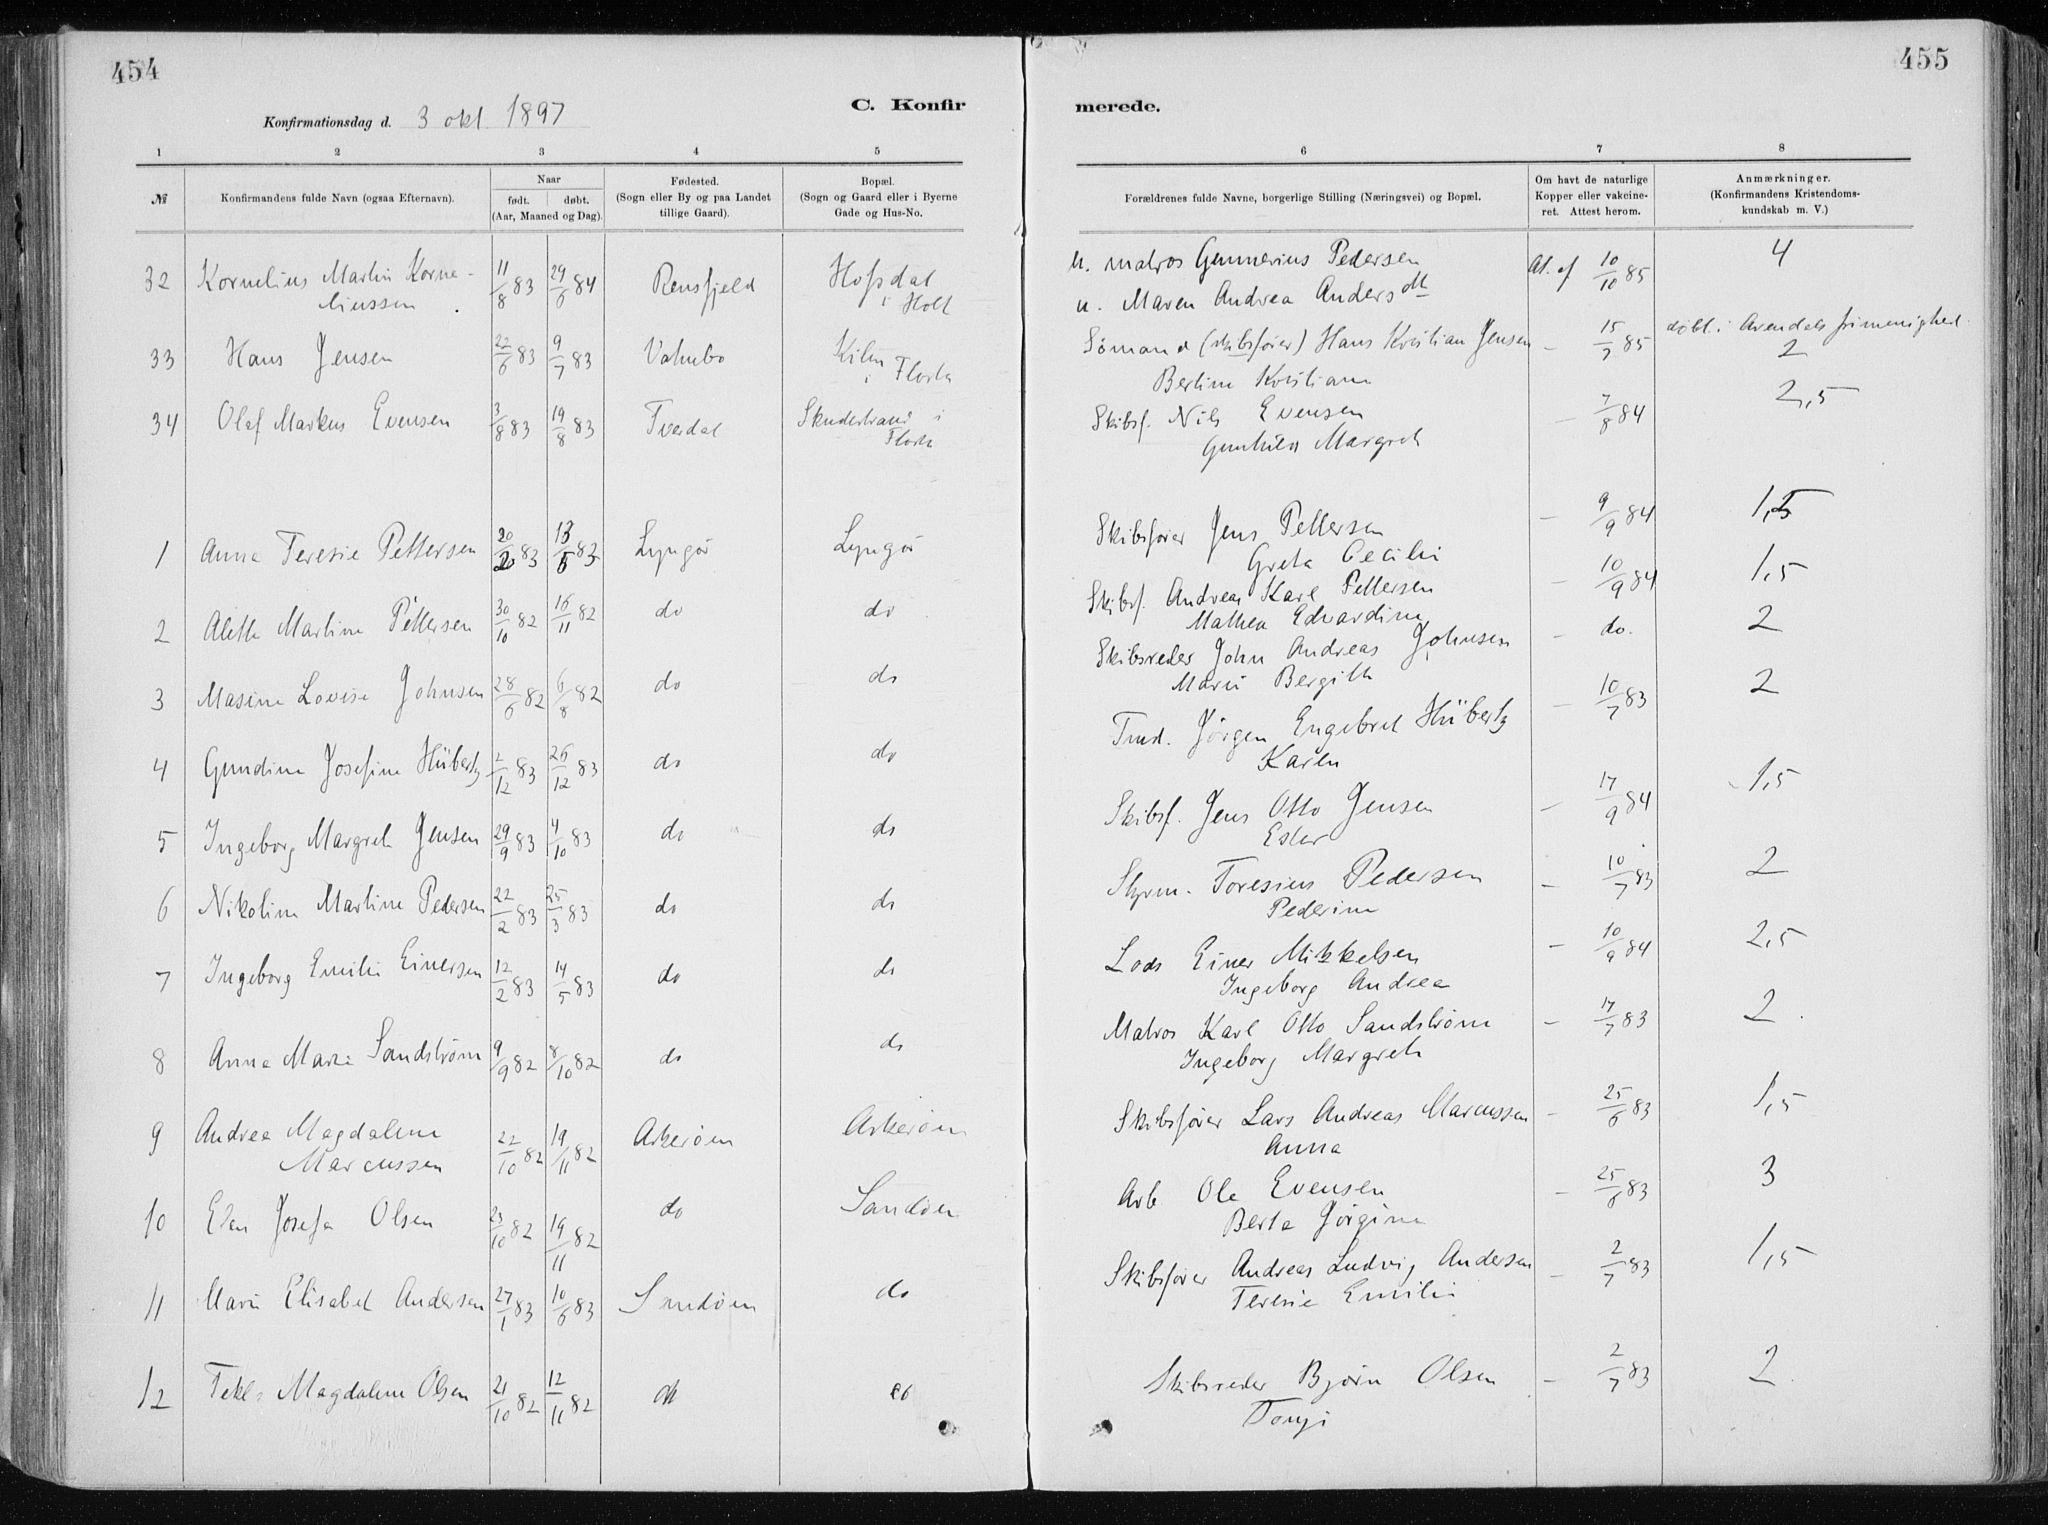 454
455
C. Konfir
merede.
Konfirmationsdag d. 3 okt. 1897
1 2 3 4 5
6 7 8
№ Konfirmandens fulde Navn (ogsaa Efternavn). Naar født. døbt. (Aar, Maaned og Dag). Fødested. (Sogn eller By og paa Landet tillige Gaard). Bopæl. (Sogn og Gaard eller i Byerne Gade og Hus-No.
Forældrenes fulde Navne, borgerlige Stilling (Næringsvei) og Bopæl. Om havt de naturlige Kopper eller vakcineret. Attest herom. Anmærkninger. (Konfirmandens Kristendomskundskab m. V.)
32 Kornelius Martin Korne- 11/8 83 29/6 84 Rensfjeld
liussen i Holt
u. matros Gunnerius Pedersen At. af 10/10 85 4
u. Maren Andrea Andersdtt
33 Hans Jensen 22/6 83 9/7 83 i Flosta
Sømand (skibsfører) Hans Kristian Jensen - 15/7 85 døbt i Arendals frimenighed. 2
Bertine Kristiane
34 Olaf Markus Evensen 3/8 83 19/8 83 Tverdal i Flosta
Skibsf. Nils Evensen - 7/8 84 2,5
Gunhild Margreth
1 Anna Teresie Pettersen 83 83 Lyngør Lyngør
Skibsfører Jens Pettersen - 9/9 84 1,5
Greta Cecilie
2 Alette Martine Pettersen 30/10 82 16/11 82 do do
Skibsf. Andreas Karl Pettersen - 10/9 84 1,5
Mathea Edvardine
3 Masine Lovise Johnsen 28/6 82 6/8 82 do do
Skibsreder John Andreas Johnsen - do. 2
Marie Bergithe
4 Gundine Josefine Hübertz 2/12 83 26/12 83 do do
Tmd. Jörgen Engebret Hübertz - 10/7 83 2
Karen
5 Ingeborg Margreth Jensen 29/9 83 4/10 83 do do
Skibsf. Jens Otto Jensen - 17/9 84 1,5
Ester
6 Nikoline Martine Pedersen 22/2 83 25/3 83 do do
Styrm. Toresius Pedersen - 10/7 83 2
Pederine
7 Ingeborg Emilie Einersen 12/2 83 14/5 83 do do
Lods Einer Mikkelsen - 10/9 84 2,5
Ingeborg Andrea
8 Anna Marie Sandstrøm 9/9 82 8/10 82 do do
Matros Karl Otto Sandstrøm - 17/7 83 2
Ingeborg Margreth
9 Andrea Magdalene 22/10 82 19/11 82 Askerøen Askerøen
Marcussen
Skibsfører Lars Andreas Marcussen - 25/6 83 1,5
Anna
10 Elen Josefa Olsen 23/10 82 19/11 82 do Sandøen
Arb Ole Evensen - 25/6 83 3
Berte Jörgine
11 Marie Elisabet Andersen 27/1 83 10/6 83 Sandøen do
Skibsfører Andreas Ludvig Andersen - 2/7 83 1,5
Teresie Emilie
12 Tekla Magdalene Olsen 21/10 82 12/11 82 do do
Skibsreder Bjørn Olsen - 2/7 83 2
Tonji